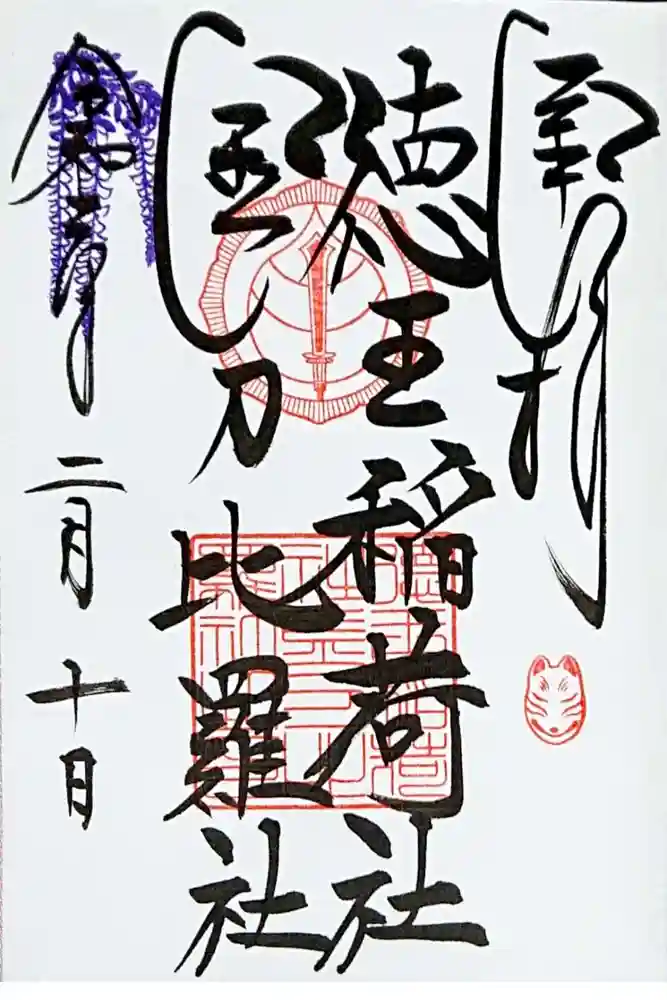 奉拝
徳王稲荷社
金刀比羅社
令和 年
二月
十日